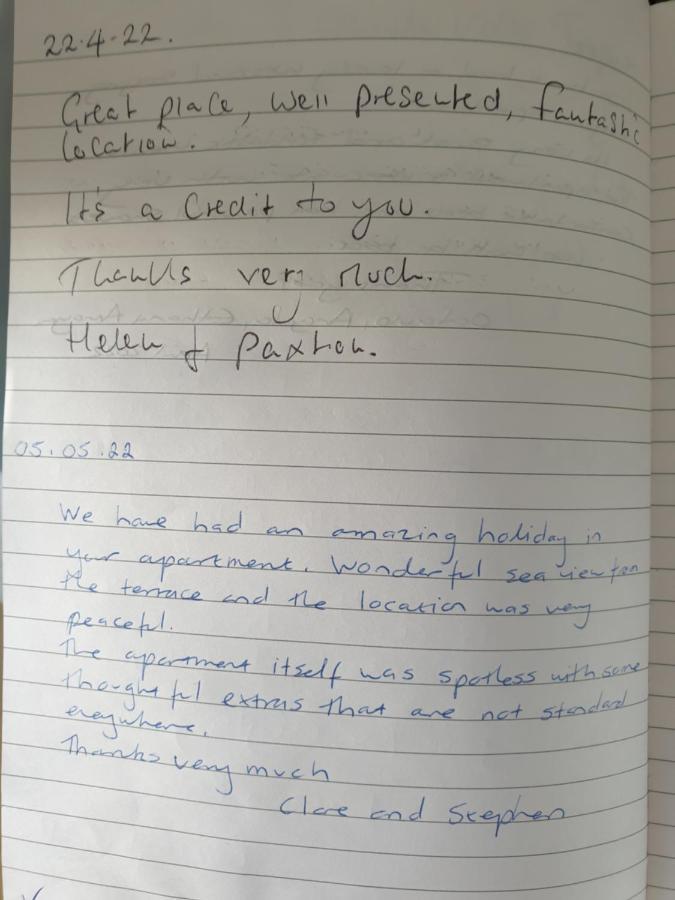 22.4.22.
Great place, well presented, fantastic
location.
It's a credit to you.
Thanks very much.
Helen & Paxton.
05.05.22
We have had an amazing holiday in
your apartment. Wonderful sea view from
the terrace and the location was very
peaceful.
The apartment itself was spotless with some
thoughtful extras that are not standard
everywhere.
Thanks very much
Clare and Stephen